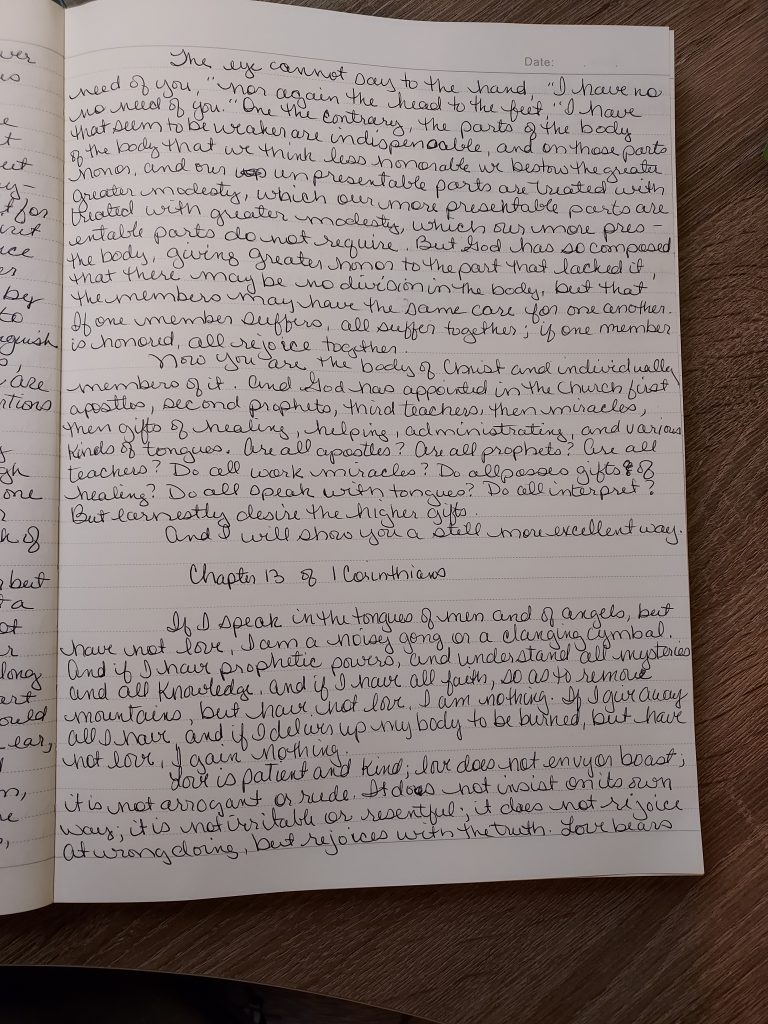 Date:
The eye cannot say to the hand, "I have no
need of you," nor again the head to the feet, "I have
no need of you." One the contrary, the parts of the body
that seem to be weaker are indispensable, and on those parts
of the body that we think less honorable we bestow the greater
honor, and our unpresentable parts are treated with
greater modesty, which our more presentable parts are
treated with greater modesty, which our more pres-
entable parts do not require. But God has so composed
the body, giving greater honor to the part that lacked it,
that there may be no division in the body, but that
the members may have the same care for one another.
If one member suffers, all suffer together; if one member
is honored, all rejoice together.
Now you are the body of Christ and individually
members of it. And God has appointed in the Church first
apostles, second prophets, third teachers, then miracles,
then gifts of healing, helping, administrating, and various
kinds of tongues. Are all apostles? Are all prophets? Are all
teachers? Do all work miracles? Do all posses gifts of
healing? Do all speak with tongues? Do all interpret?
But earnestly desire the higher gifts.
And I will show you a still more excellent way.
Chapter 13 of 1 Corinthians
If I speak in the tongues of men and of angels, but
have not love, I am a noisey gong or a clanging cymbal.
And if I have prophetic powers, and understand all mysteries
and all knowledge, and if I have all faith, so as to remove
mountains, but have not love, I am nothing. If I give away
all I have, and if I delivers up my body to be burned, but have
not love, I gain nothing.
Love is patient and kind; love does not envy or boast;
it is not arrogant or rude. It does not insist on its own
way; it is not irritable or resentful; it does not rejoice
at wrongdoing, but rejoices with the truth. Love bears